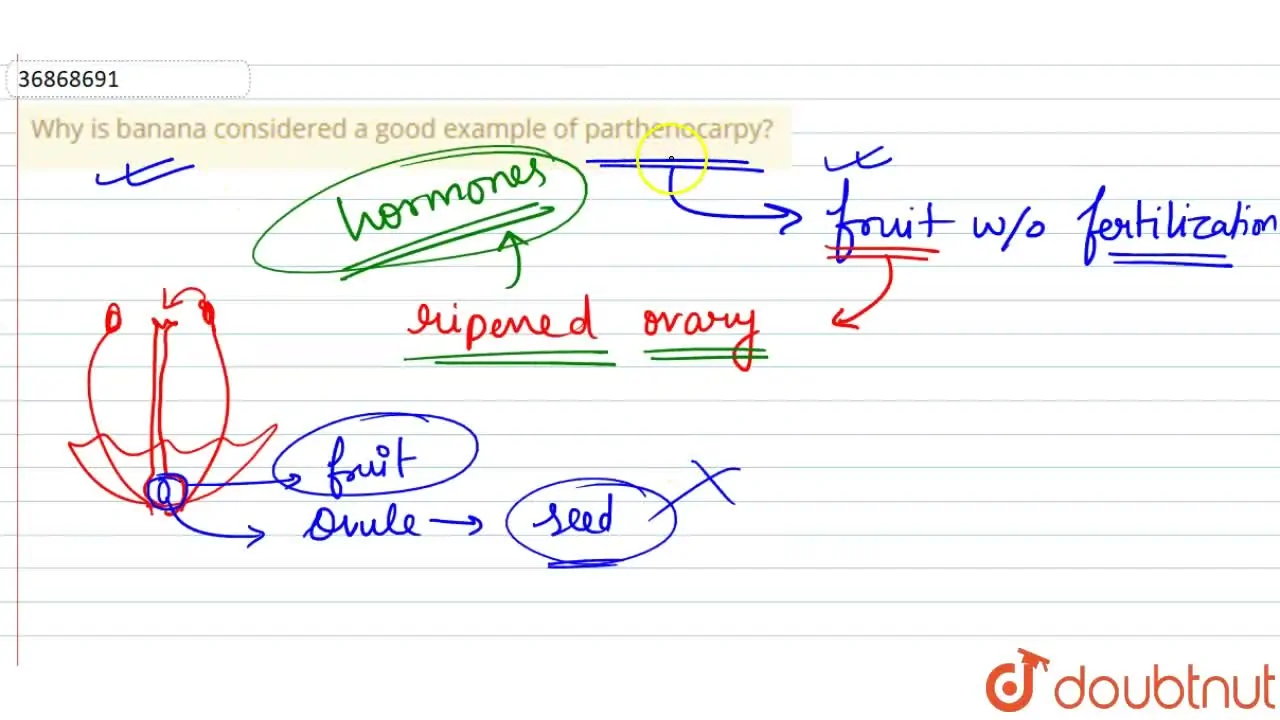 36868691
Why is banana considered a good example of parthenocarpy?
hormones
fruit w/o fertilization
ripened ovary
fruit
ovule → seed
doubtnut